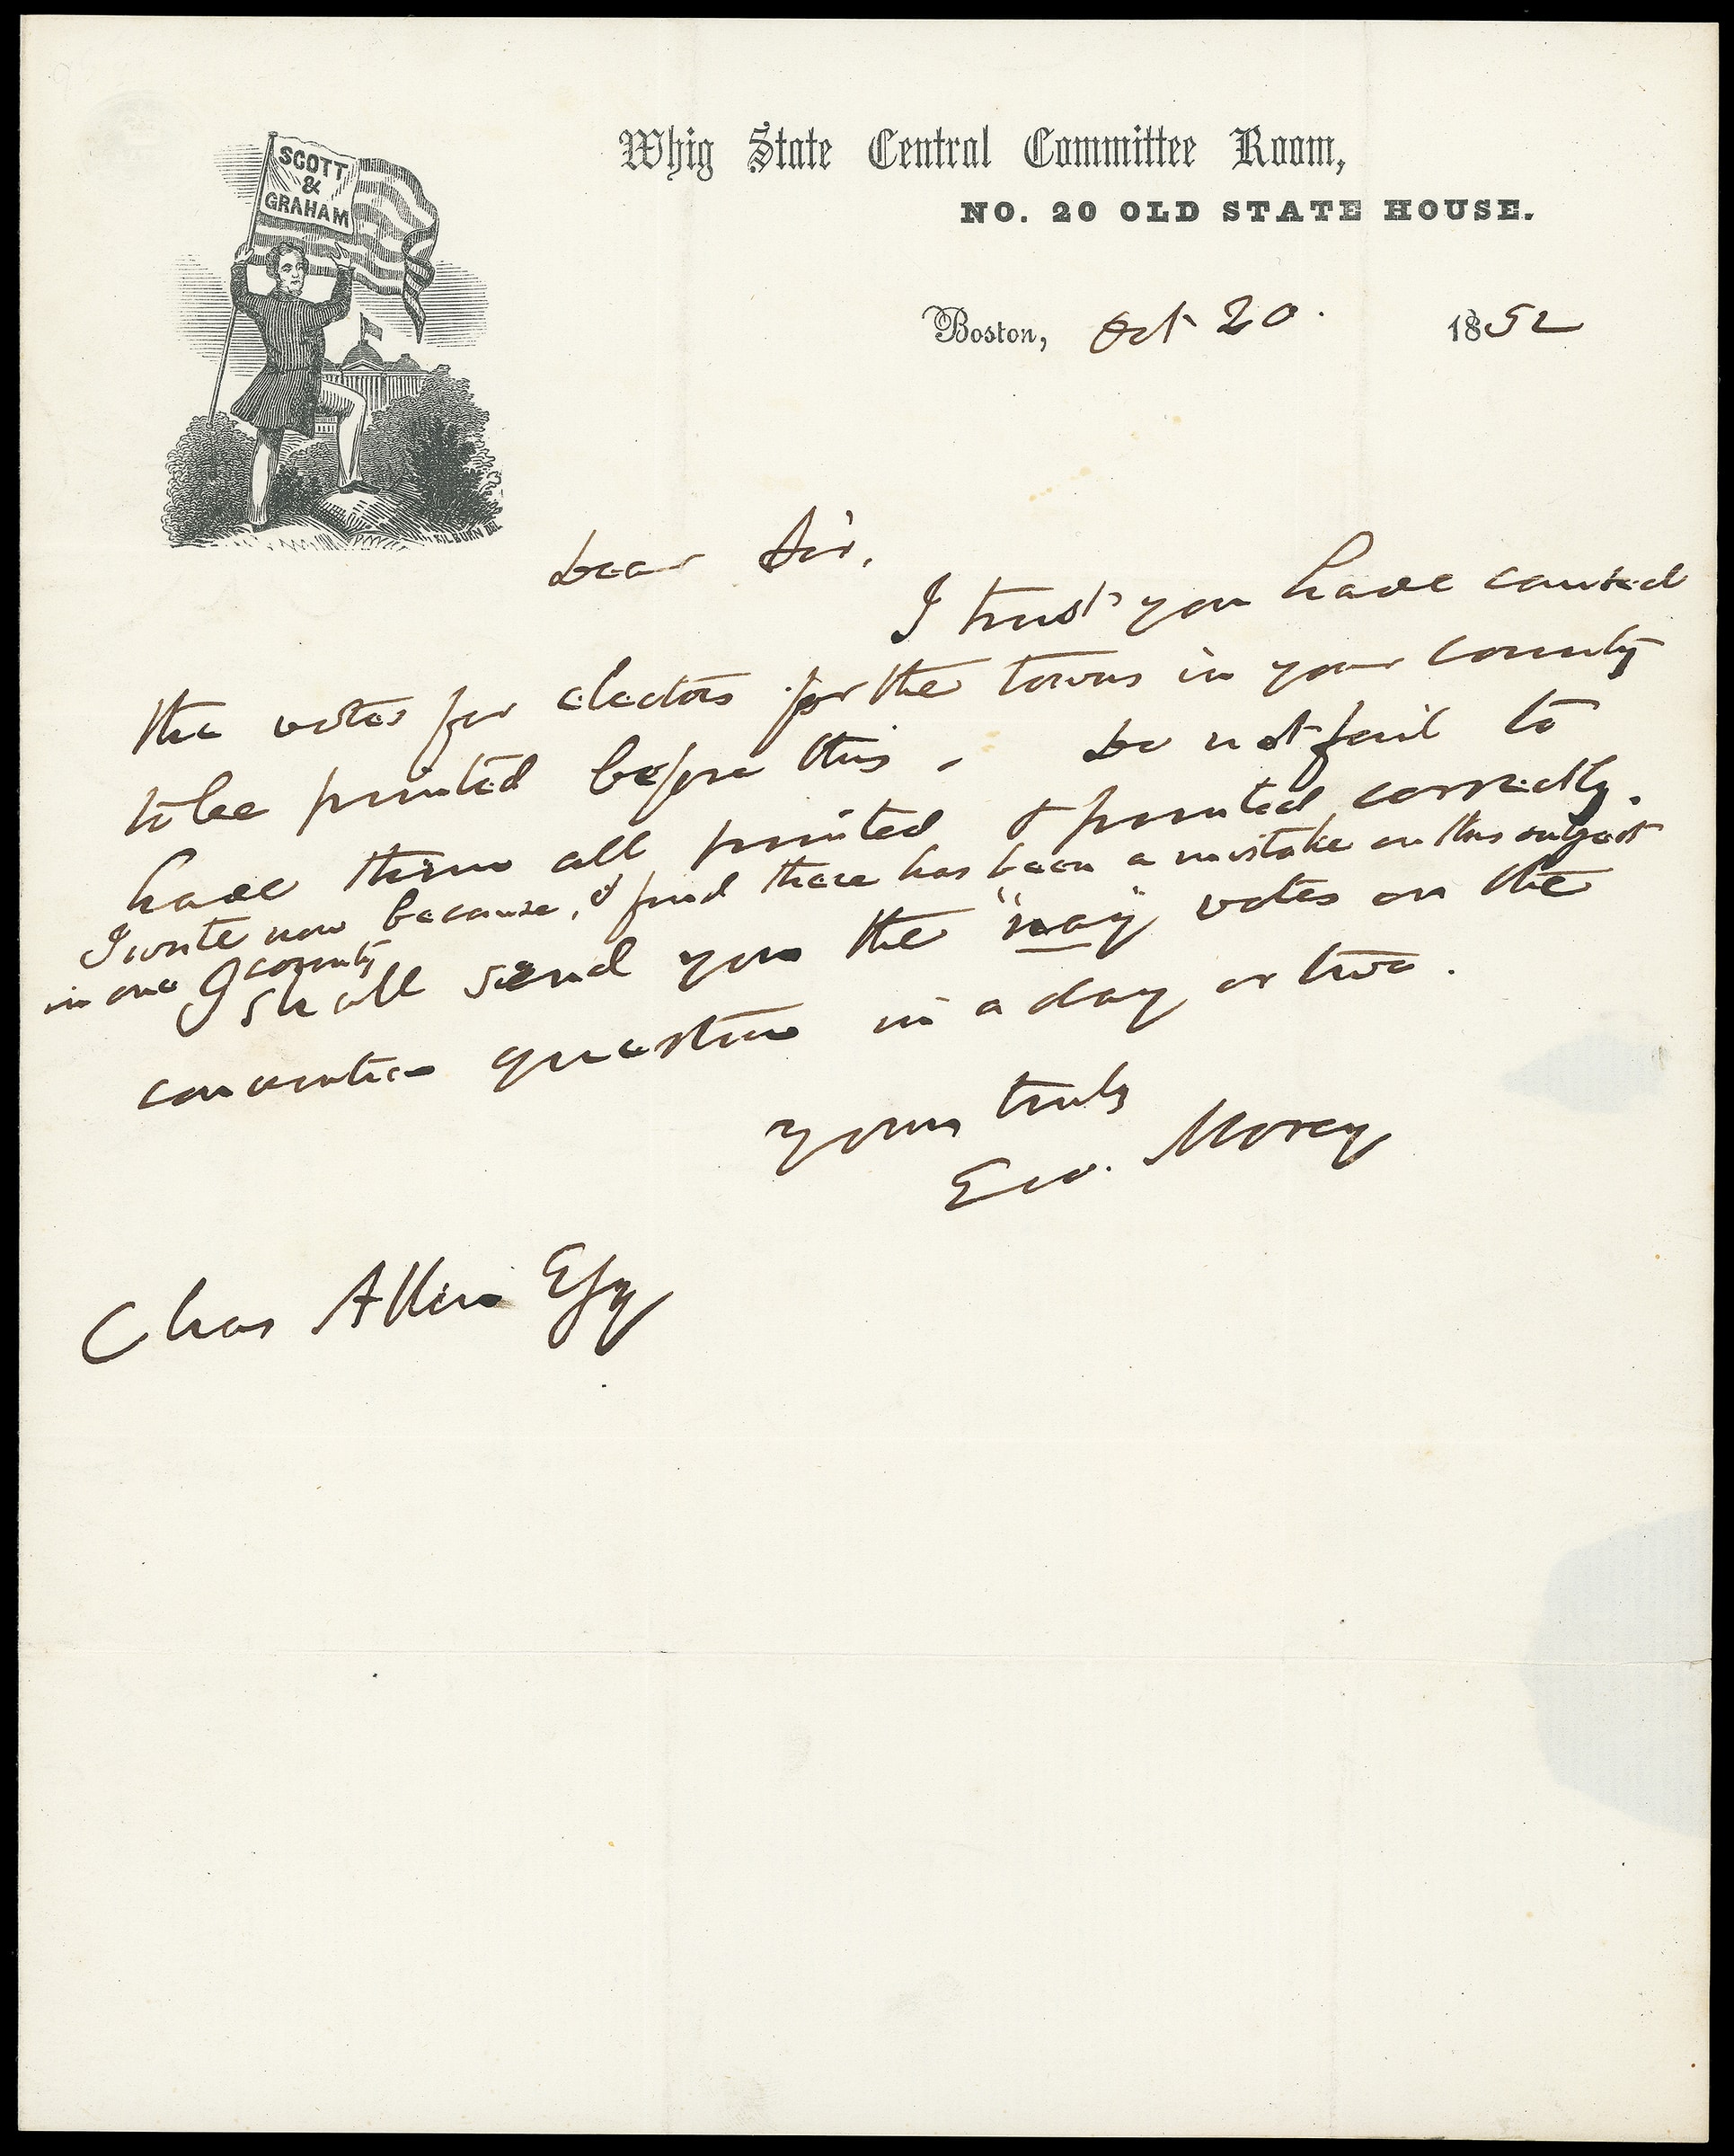 SCOTT
&
GRAHAM
KILBURN DEL
Whig State Central Committee Room,
NO. 20 OLD STATE HOUSE.
Boston, Oct 20. 1852
Dear Sir,
I trust you have caused
the votes for electors for the towns in your county
to be printed before this. Do not fail to
have them all printed & printed correctly.
I write now because, I find there has been a mistake on this subject
in one county
I shall send you the "nay" votes on the
convention question in a day or two.
yours truly
Geo. Morey
Chas Allen Esq